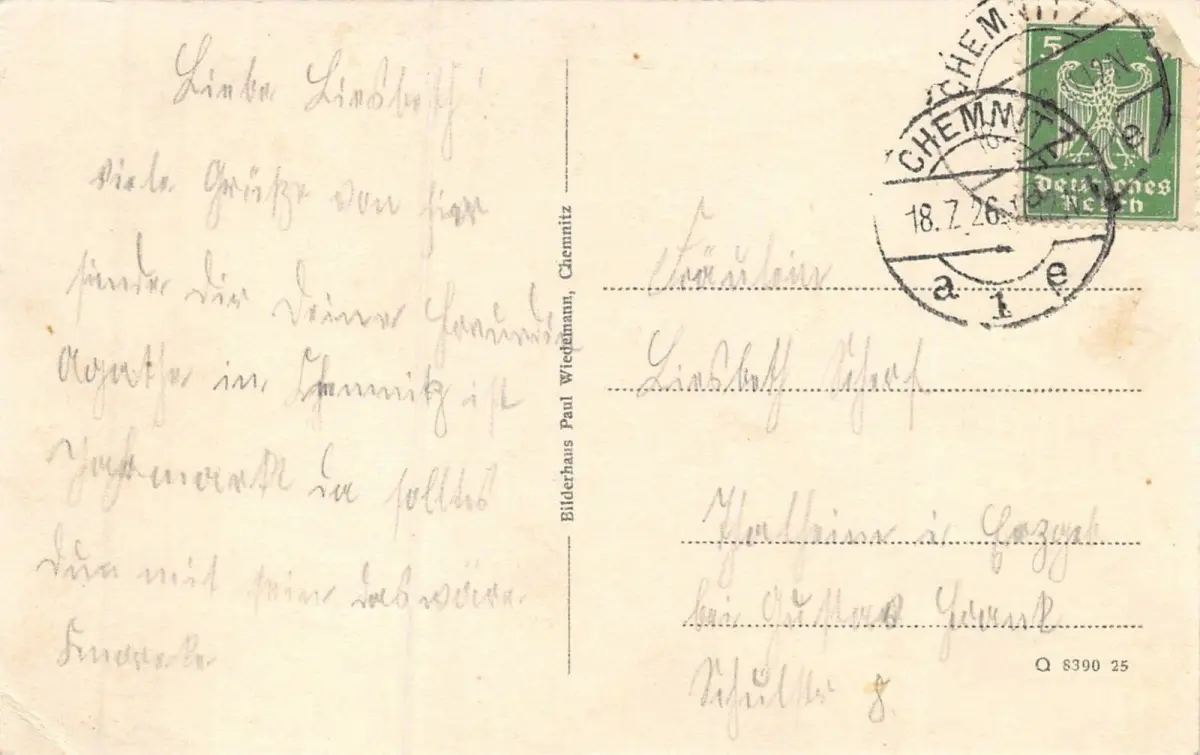 Liebe Liesbeth!
viele Grüße von hier
sendet dir deine Freundin
Agathe in Chemnitz ist
Jahrmarkt da solltes
Du mit sein das wäre
Bilderhaus Paul Wiedemann, Chemnitz
CHEMNITZ
CHEMNITZ
18.7.26
a 1 e
e
5
Deutsches
Reich
Fräulein
Liesbeth Scherf
Thalheim i Erzgeb
bei Gustav Frank
Schulstr 8
Q 8390 25